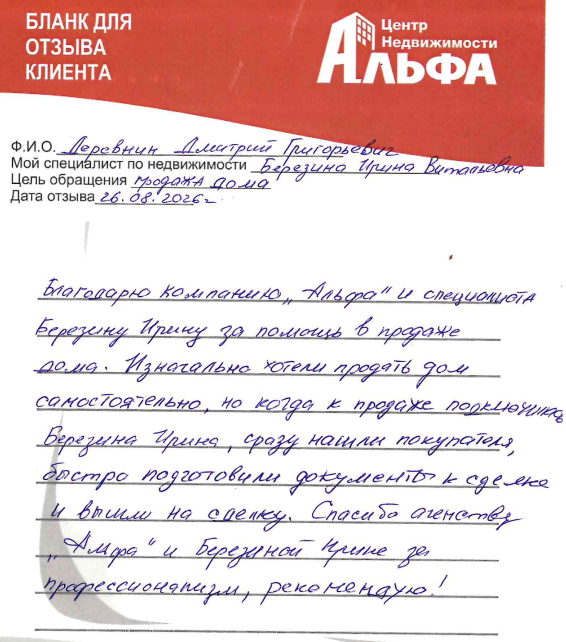 БЛАНК ДЛЯ
ОТЗЫВА
КЛИЕНТА
Центр
Недвижимости
АЛЬФА
Ф.И.О. Деревнин Дмитрий Григорьевич
Мой специалист по недвижимости Березина Ирина Витальевна
Цель обращения продажа дома
Дата отзыва 26.08.2026г
Благодарю компанию „Альфа" и специалиста
Березину Ирину за помощь в продаже
дома. Изначально хотели продать дом
самостоятельно, но когда к продаже подключилась
Березина Ирина, сразу нашли покупателя,
быстро подготовили документы к сделке
и вышли на сделку. Спасибо агенству
„Альфа" и Березиной Ирине за
профессионализм, рекомендую!